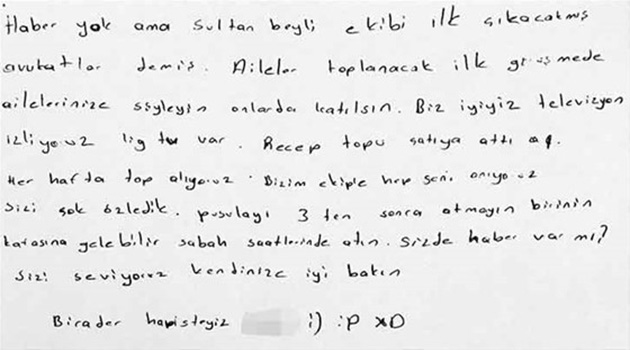 Haber yok ama Sultan beyli ekibi ilk çıkacakmış
avukatlar demiş. Aileler toplanacak ilk görüşmede
ailelerinize söyleyin onlarda katılsın. Biz iyiyiz televizyon
izliyoruz lig tv var. Recep topu çatıya attı aq.
Her hafta top alıyoruz. Bizim ekiple hep seni anıyoruz
Sizi çok özledik. pusulayı 3 ten sonra atmayın birinin
kafasına gelebilir sabah saatlerinde atın. Sizde haber var mı?
Sizi seviyoruz kendinize iyi bakın
Birader hapisteyiz :) :P xD